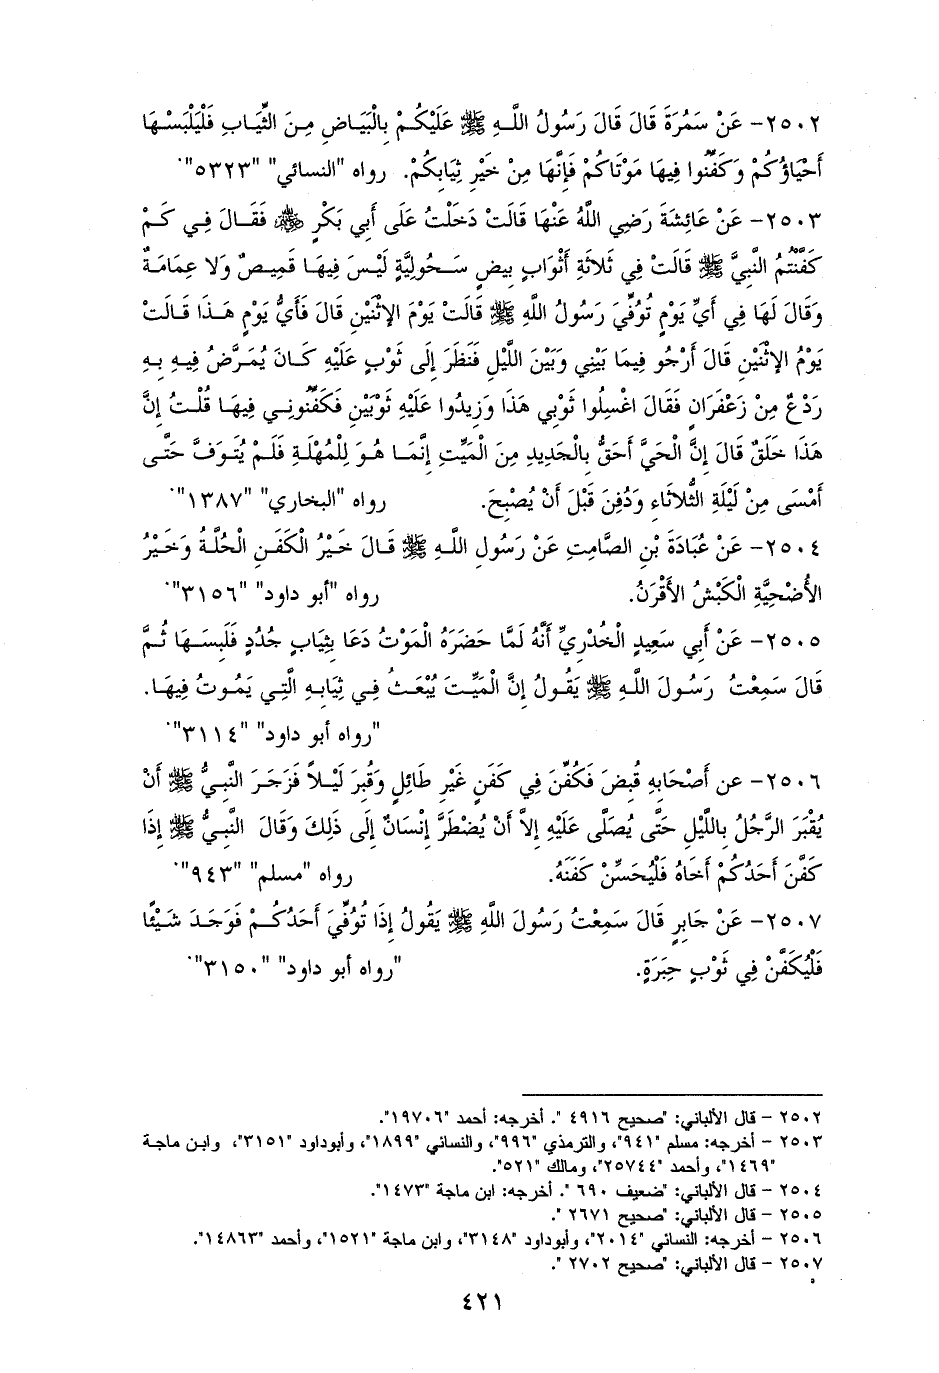 ٢٥٠٢- عَنْ سَمُرَةَ قَالَ قَالَ رَسُولُ اللَّهِ ﷺ عَلَيْكُمْ بِالْبَيَاضِ مِنَ الثِّيَابِ فَلْيَلْبَسْهَا
أَحْيَاؤُكُمْ وَكَفِّنُوا فِيهَا مَوْتَاكُمْ فَإِنَّهَا مِنْ خَيْرِ ثِيَابِكُمْ. رواه "النسائي" "٥٣٢٣".
٢٥٠٣- عَنْ عَائِشَةَ رَضِي اللَّهُ عَنْهَا قَالَتْ دَخَلْتُ عَلَى أَبِي بَكْرٍ ﷺ فَقَالَ فِي كَمْ
كَفَّنْتُمُ النَّبِيَّ ﷺ قَالَتْ فِي ثَلاثَةِ أَثْوَابٍ بِيضٍ سَحُولِيَّةٍ لَيْسَ فِيهَا قَمِيصٌ وَلا عِمَامَةٌ
وَقَالَ لَهَا فِي أَيِّ يَوْمٍ تُوُفِّيَ رَسُولُ اللَّهِ ﷺ قَالَتْ يَوْمَ الإثْنَيْنِ قَالَ فَأَيُّ يَوْمٍ هَذَا قَالَتْ
يَوْمُ الإثْنَيْنِ قَالَ أَرْجُو فِيمَا بَيْنِي وَبَيْنَ اللَّيْلِ فَنَظَرَ إِلَى ثَوْبٍ عَلَيْهِ كَانَ يُمَرَّضُ فِيهِ بِهِ
رَدْعٌ مِنْ زَعْفَرَانٍ فَقَالَ اغْسِلُوا ثَوْبِي هَذَا وَزِيدُوا عَلَيْهِ ثَوْبَيْنِ فَكَفِّنُونِي فِيهَا قُلْتُ إِنَّ
هَذَا خَلَقٌ قَالَ إِنَّ الْحَيَّ أَحَقُّ بِالْجَدِيدِ مِنَ الْمَيِّتِ إِنَّمَا هُوَ لِلْمُهْلَةِ فَلَمْ يُتَوَفَّ حَتَّى
أَمْسَى مِنْ لَيْلَةِ الثُّلاثَاءِ وَدُفِنَ قَبْلَ أَنْ يُصْبِحَ. رواه "البخاري" "١٣٨٧".
٢٥٠٤- عَنْ عُبَادَةَ بْنِ الصَّامِتِ عَنْ رَسُولِ اللَّهِ ﷺ قَالَ خَيْرُ الْكَفَنِ الْحُلَّةُ وَخَيْرُ
الأُضْحِيَّةِ الْكَبْشُ الأَقْرَنُ. رواه "أبو داود" "٣١٥٦".
٢٥٠٥- عَنْ أَبِي سَعِيدٍ الْخُدْرِيِّ أَنَّهُ لَمَّا حَضَرَهُ الْمَوْتُ دَعَا بِثِيَابٍ جُدُدٍ فَلَبِسَهَا ثُمَّ
قَالَ سَمِعْتُ رَسُولَ اللَّهِ ﷺ يَقُولُ إِنَّ الْمَيِّتَ يُبْعَثُ فِي ثِيَابِهِ الَّتِي يَمُوتُ فِيهَا.
"رواه أبو داود" "٣١١٤".
٢٥٠٦- عن أَصْحَابِهِ قُبِضَ فَكُفِّنَ فِي كَفَنٍ غَيْرِ طَائِلٍ وَقُبِرَ لَيْلاً فَزَجَرَ النَّبِيُّ ﷺ أَنْ
يُقْبَرَ الرَّجُلُ بِاللَّيْلِ حَتَّى يُصَلَّى عَلَيْهِ إِلاَّ أَنْ يُضْطَرَّ إِنْسَانٌ إِلَى ذَلِكَ وَقَالَ النَّبِيُّ ﷺ إِذَا
كَفَّنَ أَحَدُكُمْ أَخَاهُ فَلْيُحَسِّنْ كَفَنَهُ. رواه "مسلم" "٩٤٣".
٢٥٠٧- عَنْ جَابِرٍ قَالَ سَمِعْتُ رَسُولَ اللَّهِ ﷺ يَقُولُ إِذَا تُوُفِّيَ أَحَدُكُمْ فَوَجَدَ شَيْئًا
فَلْيُكَفَّنْ فِي ثَوْبٍ حِبَرَةٍ. "رواه أبو داود" "٣١٥٠".
٢٥٠٢ - قال الألباني: "صحيح ٤٩١٦ ". أخرجه: أحمد "١٩٧٠٦".
٢٥٠٣ - أخرجه: مسلم "٩٤١"، والترمذي "٩٩٦"، والنسائي "١٨٩٩"، وأبوداود "٣١٥١"، وابن ماجة
"١٤٦٩"، وأحمد "٢٥٧٤٤"، ومالك "٥٢١".
٢٥٠٤ - قال الألباني: "ضعيف ٦٩٠ ". أخرجه: ابن ماجة "١٤٧٣".
٢٥٠٥ - قال الألباني: "صحيح ٢٦٧١ ".
٢٥٠٦ - أخرجه: النسائي "٢٠١٤"، وأبوداود "٣١٤٨"، وابن ماجة "١٥٢١"، وأحمد "١٤٨٦٣".
٢٥٠٧ - قال الألباني: "صحيح ٢٧٠٢ ".
٤٢١